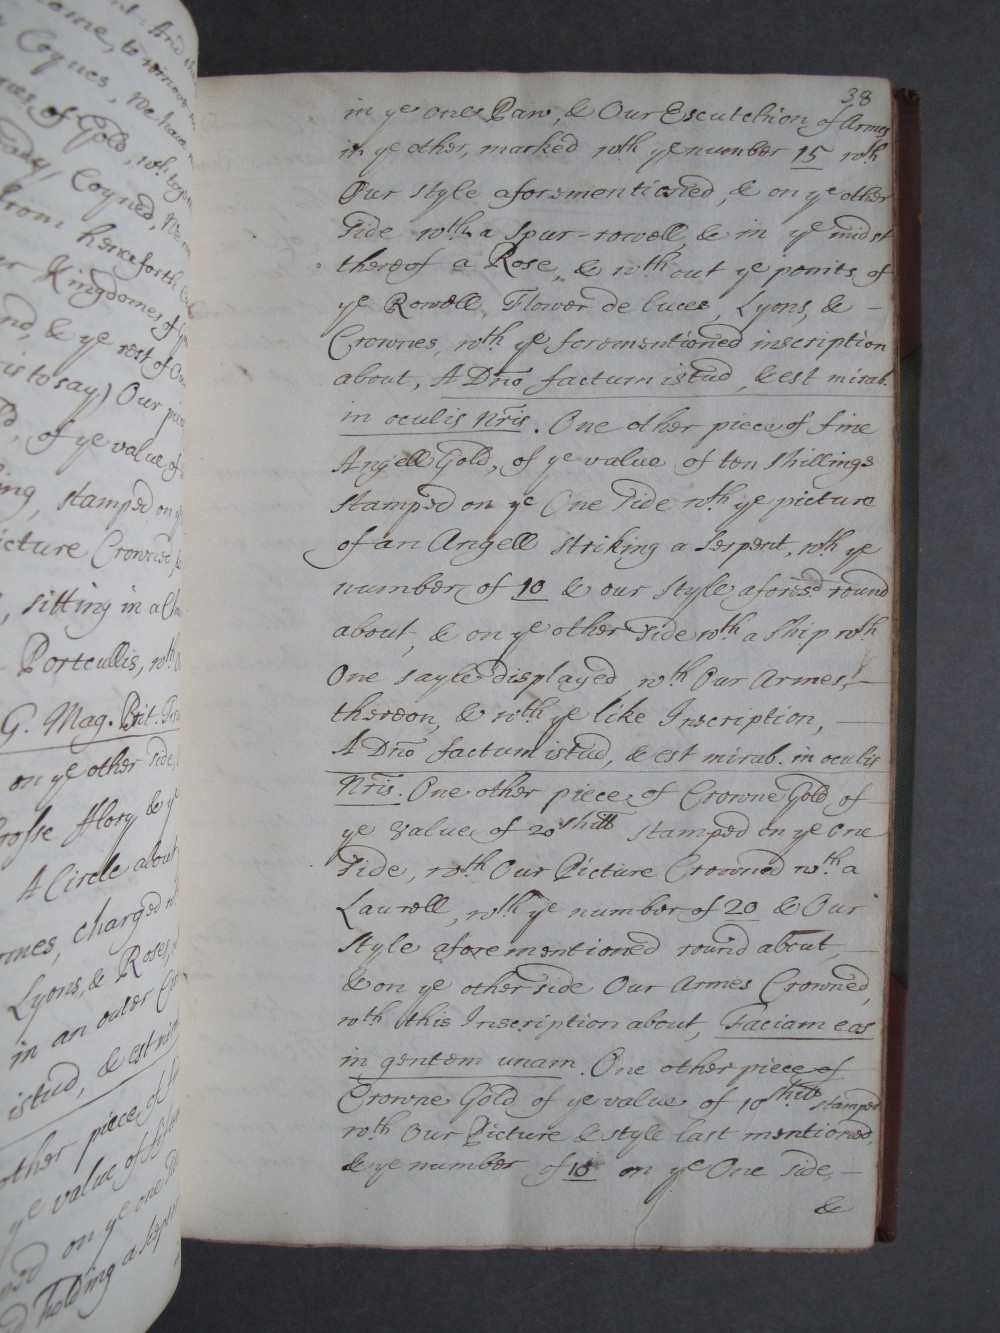 nt. And
come, to remove
Coynes, We have
of Gold, wth
Coyned, We
from henceforth
Kingdomes of
nd, & ye rest of Our
is to say) Our
, of ye value of
ing, stamped on ye
icture Crowned, &
, sitting in a
Portcullis, wth
G. Mag. Brit.
on ye other side,
Crosse flory & ye
A Circle about
rmes, charged
Lyons, & Roses,
in an outer
istud, & est
other piece of
ye value of fifteen
on ye one
holding a
38
in ye one Paw, & Our Escutchion of Armes
in ye other, marked wth ye number 15 wth
Our style aforementioned, & on ye other
side wth a Spur-rowell, & in ye midst
thereof a Rose, & wthout ye points of
ye Rowell Flower de luces, Lyons, & -
Crownes, wth ye forementioned inscription
about, A Dno factum istud, & est mirab.
in oculis nris. One other piece of fine
Angell Gold, of ye value of ten shillings
stamped on ye One side wth ye picture
of an Angell striking a Serpent, wth ye
number of 10 & our style aforesd round
about, & on ye other side wth a Ship wth
One sayle displayed wth Our Armes, -
thereon, & wth ye like Inscription, -
A Dno factum istud, & est mirab. in oculis
Nris. One other piece of Crowne Gold of -
ye value of 20 shill stamped on ye One
side, wth Our Picture Crowned wth a
Laurell, wth ye number of 20 & Our
style aforementioned round about, -
& on ye other side Our Armes Crowned,
wth this Inscription about, Faciam eas
in gentem unam. One other piece of
Crowne Gold of ye value of 10 shill stamped
wth Our Picture & style last mentioned,
& ye number of 10 on ye One side, -
&